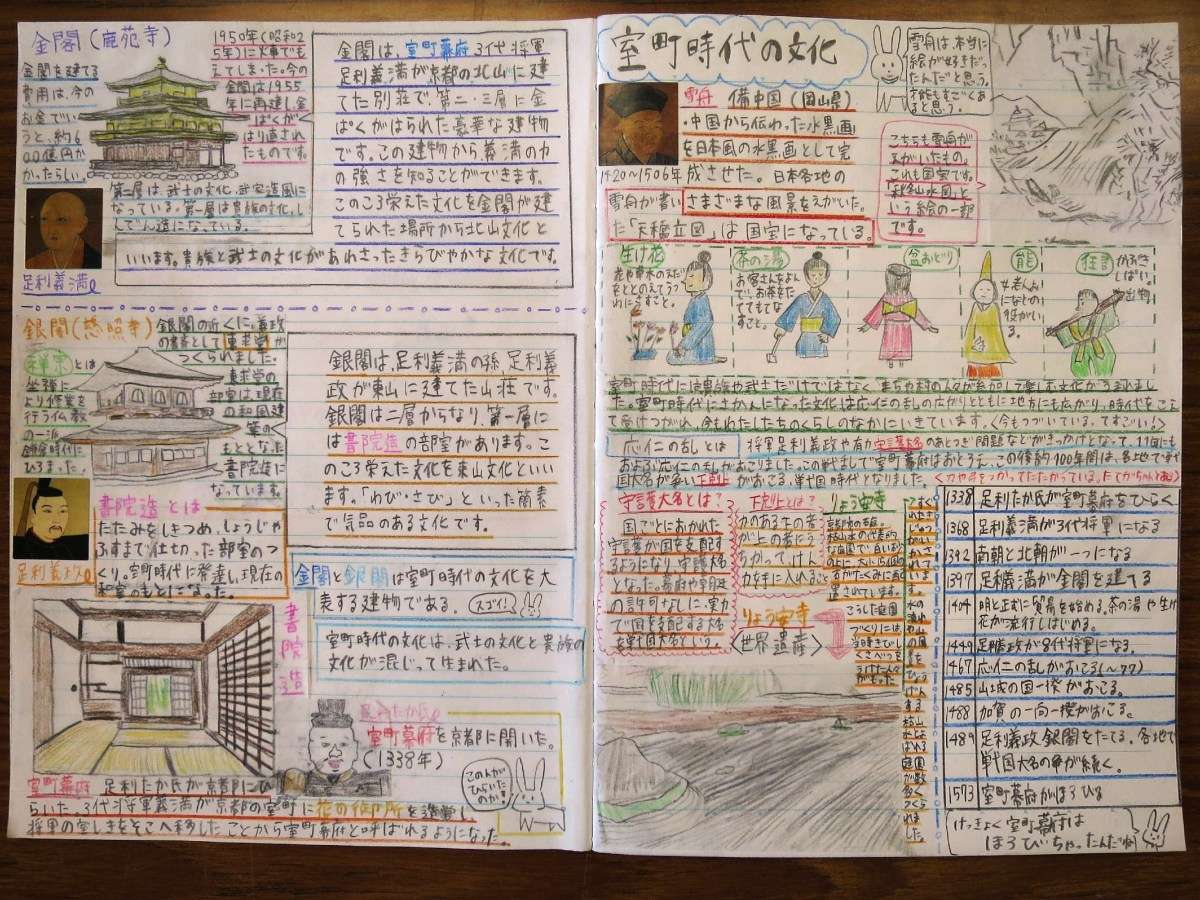 金閣(鹿苑寺)
金閣を建てる
費用は、今の
お金でいい
うと、約6
00億円か
かったらしい
1950年(昭和2
5年)に火事でも
えてしまった。今の
金閣は1955
年に再建し金
ぱくが
はり直され
たものです。
第二層は、武士の文化、武家造風に
なっている。第一層は貴族の文化、し
んでん造になっている。
足利義満
金閣は、室町幕府3代将軍
足利義満が京都の北山に建
てた別荘で、第二・三層に金
ぱくがはられた豪華な建物
です。この建物から義満の力
の強さを知ることができます。
このころ栄えた文化を金閣が建
てられた場所から北山文化と
いいます。貴族と武士の文化があわさったきらびやかな文化です。
銀閣(慈照寺)
銀閣の近くに義政
の書斎として東求堂が
つくられました。
東求堂の
部屋は、現在
の和風建
築の
もととなった
書院造に
なっています。
禅宗とは
坐禅に
より修業を
行う仏教
の一派
鎌倉時代に
ひろまった。
足利義政
銀閣は、足利義満の孫、足利義
政が東山に建てた山荘です。
銀閣は二層からなり、第一層に
は書院造の部室があります。こ
のころ栄えた文化を東山文化といい
ます。「わび・さび」といった簡素
で気品のある文化です。
書院造とは
たたみをしきつめ、しょうじや
ふすまで仕切った部室のつ
くり。室町時代に発達し、現在の
和室のもとになった。
金閣と銀閣は室町時代の文化を代
表する建物である。
スゴイ!
室町時代の文化は、武士の文化と貴族の
文化が混じって生まれた。
書院造
足利たか氏
室町幕府を京都に開いた。
(1338年)
この人が
ひらいた
のか!
室町幕府 足利たか氏が京都にひ
らいた 3代将軍義満が京都の室町に花の御所を造営し
将軍の室しきをそこへ移したことから室町幕府と呼ばれるようになった。
室町時代の文化
雪舟は、本当に
絵が好きだっ
たんだと思う。
才能もすごくあ
ると思う。
雪舟 備中国(岡山県)
・中国から伝わった水黒画
を日本風の水黒画として完
1420~1506年 成させた。日本各地の
雪舟が書い さまざまな風景をえがいた。
た「天橋立図」は国宝になっている。
こちらも雪舟が
えがいたもの。
これも国宝です。
「秋冬山水図」と
いう絵の一部
です。
生け花
花や草木のえだ
をととのえてうつ
わにさすこと。
茶の湯
お客さんをよん
で、お茶をた
ててもてな
すこと。
盆おどり
能
狂言
室町時代には貴族や武士だけではなく まちや村の人々が参加して楽しむ文化が うまれまし
た。室町時代にさかんになった文化は応仁の乱の広がりとともに地方にも広がり、時代をこえ
て受けつがれ、今もわたしたちのくらしのなかにいきています。〈今もつづいている。すごい!〉
応仁の乱とは
将軍足利義政や有力守護大名のあとつぎ問題などがきっかけとなって、11年にも
およぶ応仁の乱がおこりました。この戦乱で室町幕府はおとろえ、この後約100年間は、各地で戦
国大名が争い下剋上がおこる、戦国時代となりました。
守護大名とは?
国ごとにおかれた
守護が国を支配す
るようになり守護大名
となった。
の許可なしに、実力
で国を支配する大名
を戦国大名という。
下剋上とは?
力のあるものの者
が上の者にう
ちかってけん
力を手に入れること
りょう安寺
〈世界遺産〉
こうした庭園
づくりには、
当時きびし
くさべつを
うけた人々が
1338 足利たか氏が室町幕府をひらく
1368 足利義満が3代将軍になる
1392 南朝と北朝が一つになる
1397 足利義満が金閣を建てる
1404 明と正式に貿易を始める。茶の湯や生け
花が流行しはじめる。
1449 足利義政が8代将軍になる。
1467 応仁の乱がおこる(~77)
1485 山城の国一揆がおこる。
1488 加賀の一向一揆がおこる。
1489 足利義政銀閣をたてる。各地で
戦国大名の争が続く。
1573 室町幕府がほろびる
けっきょく室町幕府は
ほろびちゃったんだ